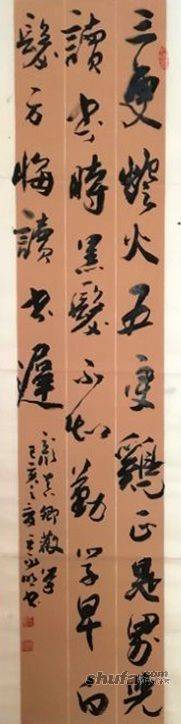 三更燈火五更鷄正是男兒
讀書時黑髮不知勤學早白
髮方悔讀書遲
顏真卿勸學
shufa.com